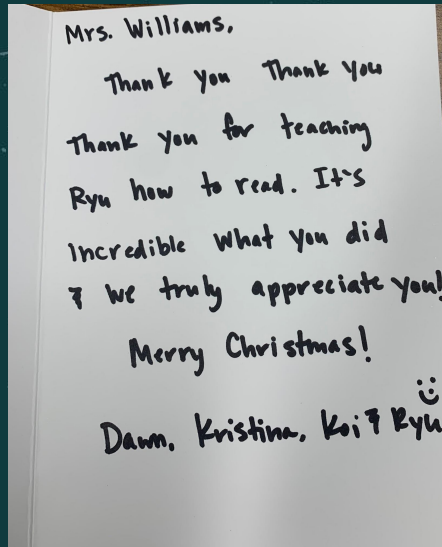 Mrs. Williams,
Thank you Thank you
Thank you for teaching
Ryu how to read. It's
incredible what you did
& we truly appreciate you!
Merry Christmas!
Dawn, Kristina, Koi & Ryu